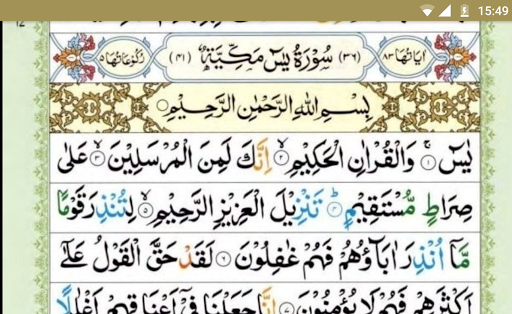 15:49
اٰیَاتُهَا ٨٣ (٣٦) سُوْرَةُ يٰسٓ مَكِّيَّةٌ (٤١) رُكُوْعَاتُهَا ٥
بِسْمِ اللهِ الرَّحْمٰنِ الرَّحِيْمِ
يٰسٓ ۚ ١ وَالْقُرْاٰنِ الْحَكِيْمِ ۙ ٢ اِنَّكَ لَمِنَ الْمُرْسَلِيْنَ ۙ ٣ عَلٰى
صِرَاطٍ مُّسْتَقِيْمٍ ؕ ٤ تَنْزِيْلَ الْعَزِيْزِ الرَّحِيْمِ ۙ ٥ لِتُنْذِرَ قَوْمًا
مَّاۤ اُنْذِرَ اٰبَآؤُهُمْ فَهُمْ غٰفِلُوْنَ ٦ لَقَدْ حَقَّ الْقَوْلُ عَلٰۤى
اَكْثَرِهِمْ فَهُمْ لَا يُؤْمِنُوْنَ ٧ اِنَّا جَعَلْنَا فِيْۤ اَعْنَاقِهِمْ اَغْلٰلًا